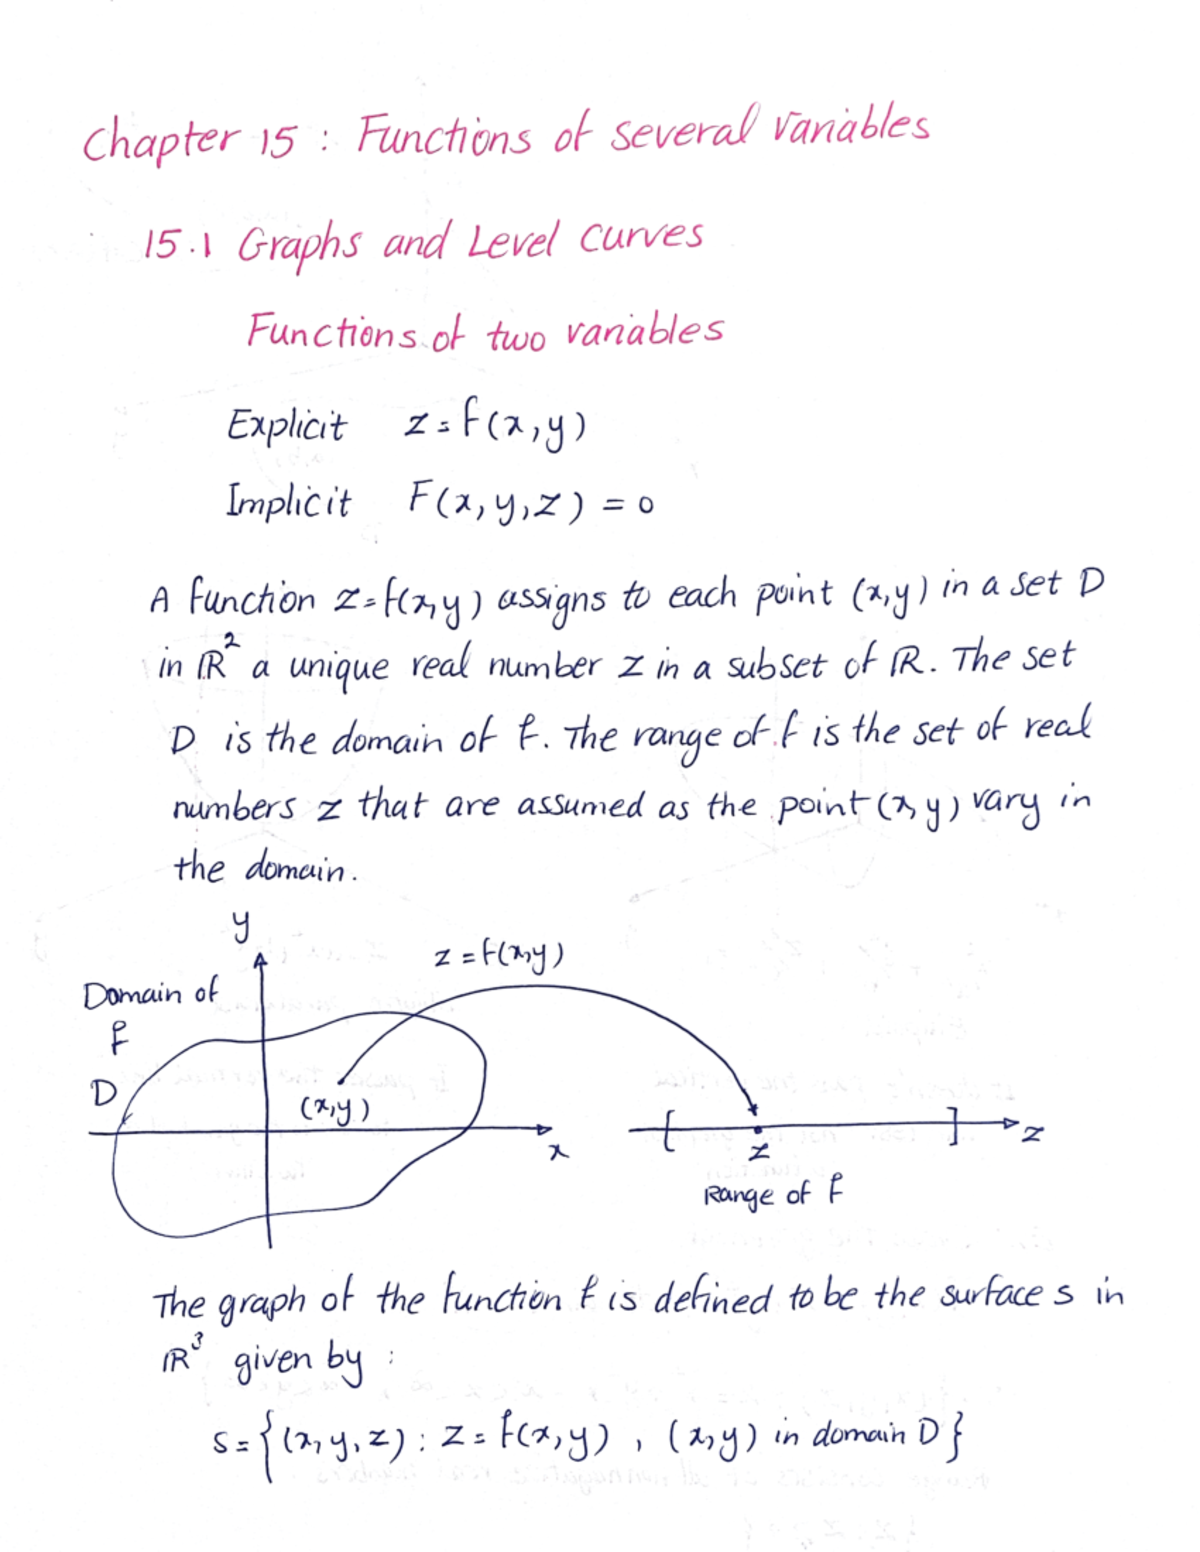 Chapter 15 : Functions of several variables
15.1 Graphs and Level curves
Functions of two variables
Explicit z = f(x,y)
Implicit F(x,y,z) = 0
A function z=f(x,y) assigns to each point (x,y) in a set D
in ℝ² a unique real number z in a subset of ℝ. The set
D is the domain of f. The range of f is the set of real
numbers z that are assumed as the point (x,y) vary in
the domain.
y
z = f(x,y)
Domain of
f
D
(x,y)
x
z
z
Range of f
The graph of the function f is defined to be the surface s in
ℝ³ given by :
S = {(x,y,z) : z = f(x,y) , (x,y) in domain D}